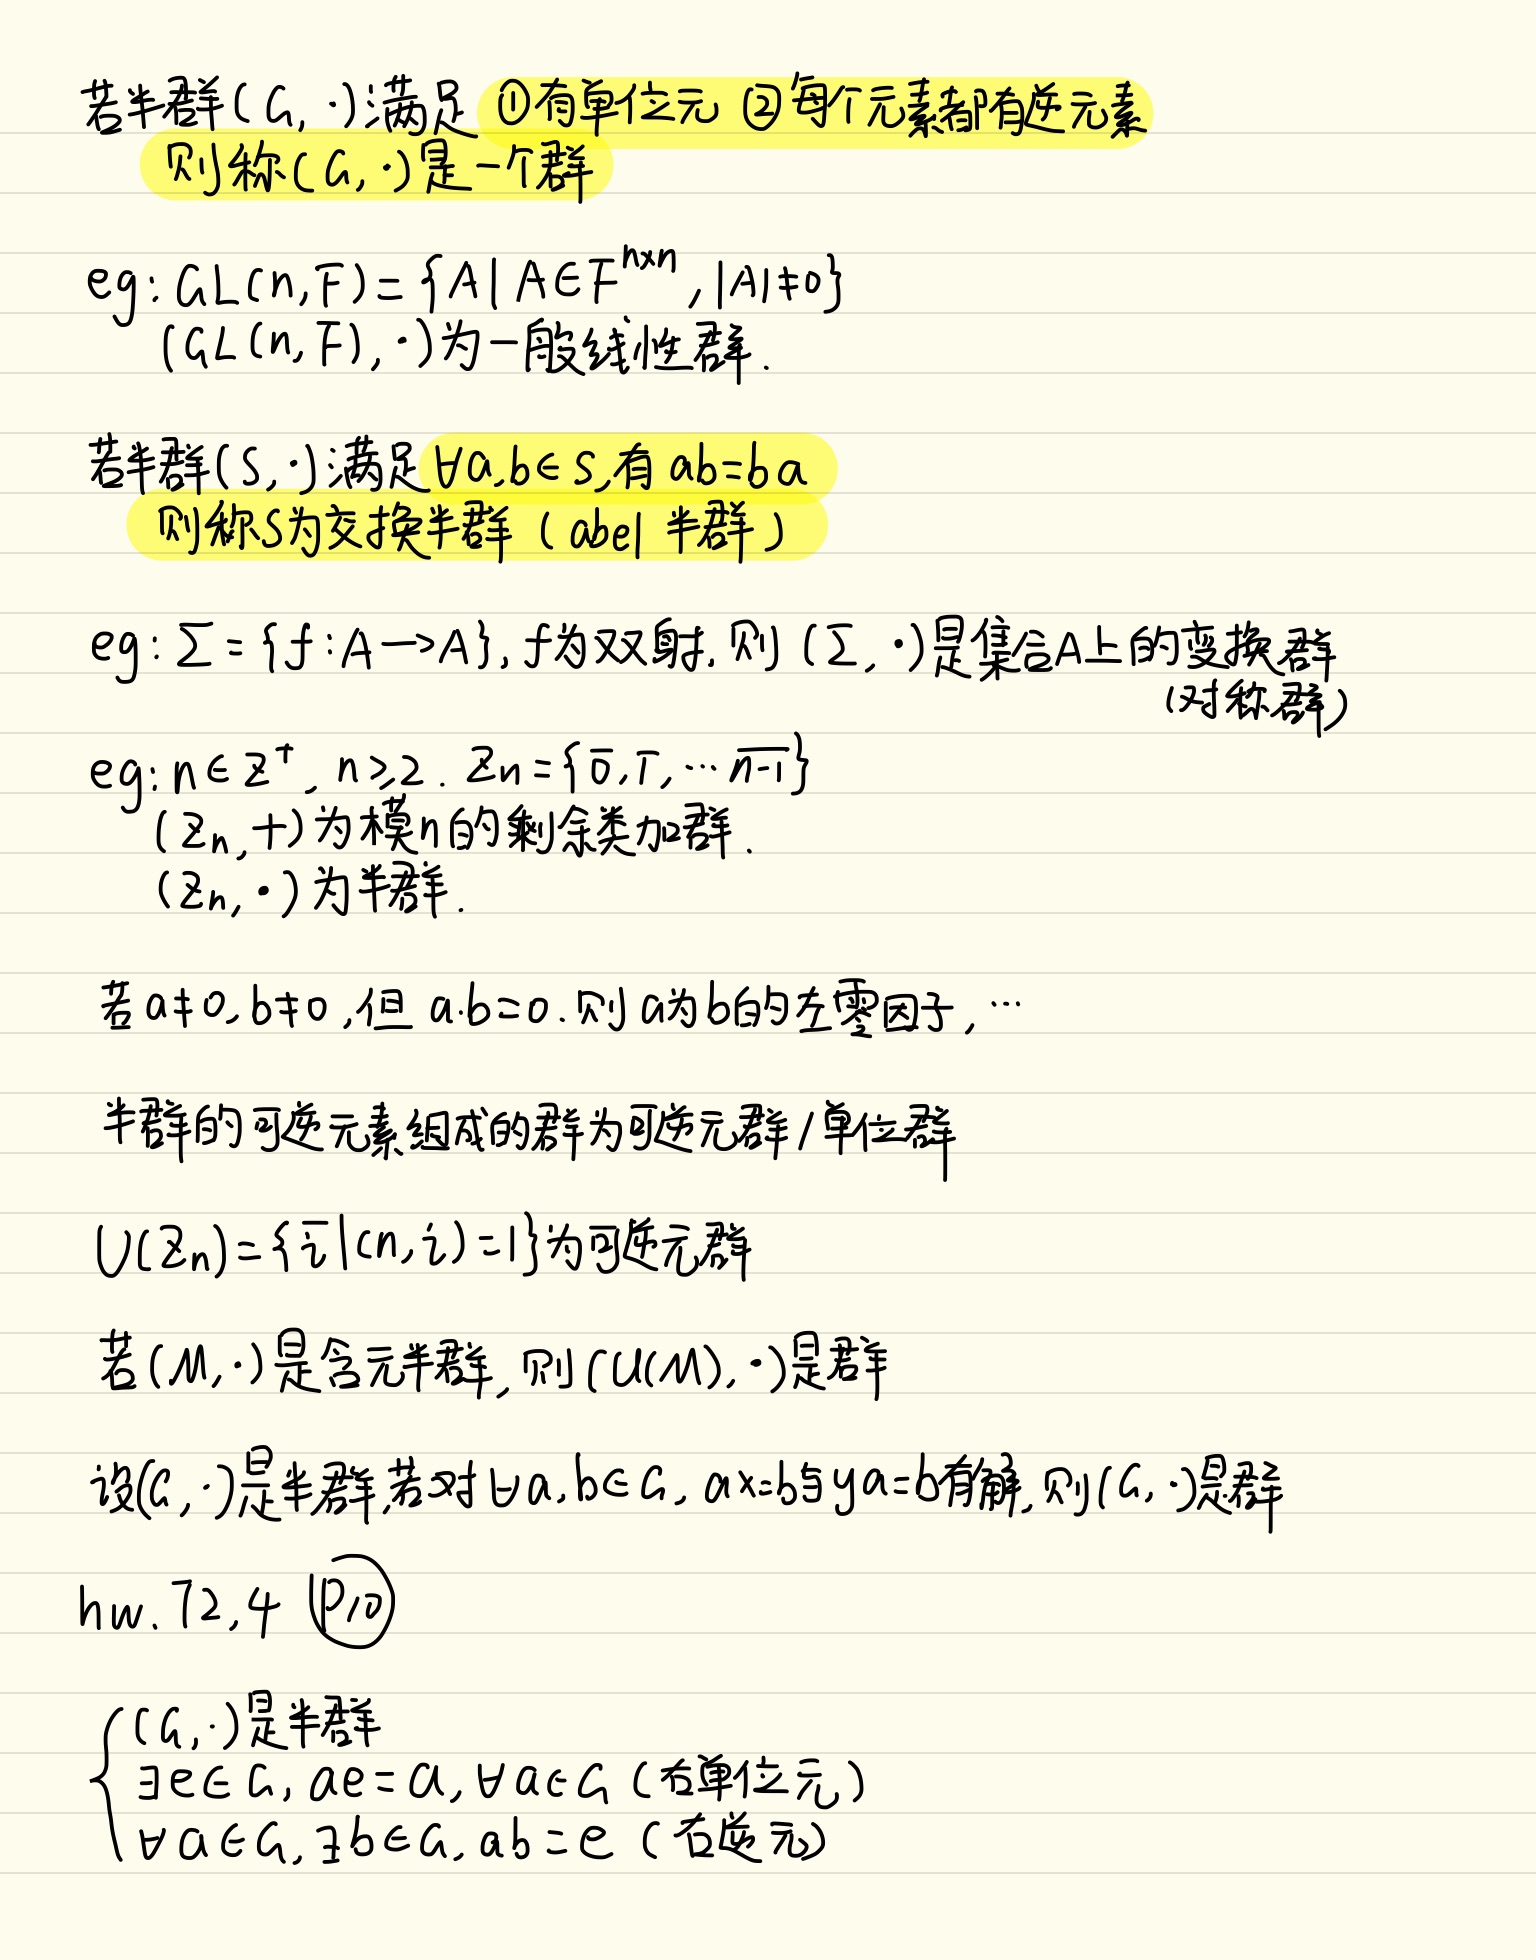 若半群(G,·)满足 ①有单位元 ②每个元素都有逆元素
则称(G,·)是一个群
eg: GL(n,F)={A| A∈F^{n×n}, |A|≠0}
(GL(n,F),·)为一般线性群.
若半群(S,·)满足∀a,b∈S,有 ab=ba
则称S为交换半群(abel 半群)
eg: Σ={f:A→A}, f为双射, 则 (Σ,·)是集合A上的变换群
(对称群)
eg: n∈Z⁺, n≥2. Zn={0̅,1̅,…n-1̅}
(Zn,+)为模n的剩余类加群.
(Zn,·)为半群.
若a≠0,b≠0,但 a·b=0.则a为b的左零因子,…
半群的可逆元素组成的群为可逆元群/单位群
U(Zn)={i̅|(n,i)=1}为可逆元群
若(M,·)是含元半群,则(U(M),·)是群
设(G,·)是半群,若对∀a,b∈G, ax=b与ya=b有解,则(G,·)是群
hw. T2,4 P10
(G,·)是半群
∃e∈G, ae=a, ∀a∈G (右单位元)
∀a∈G, ∃b∈G, ab=e (右逆元)